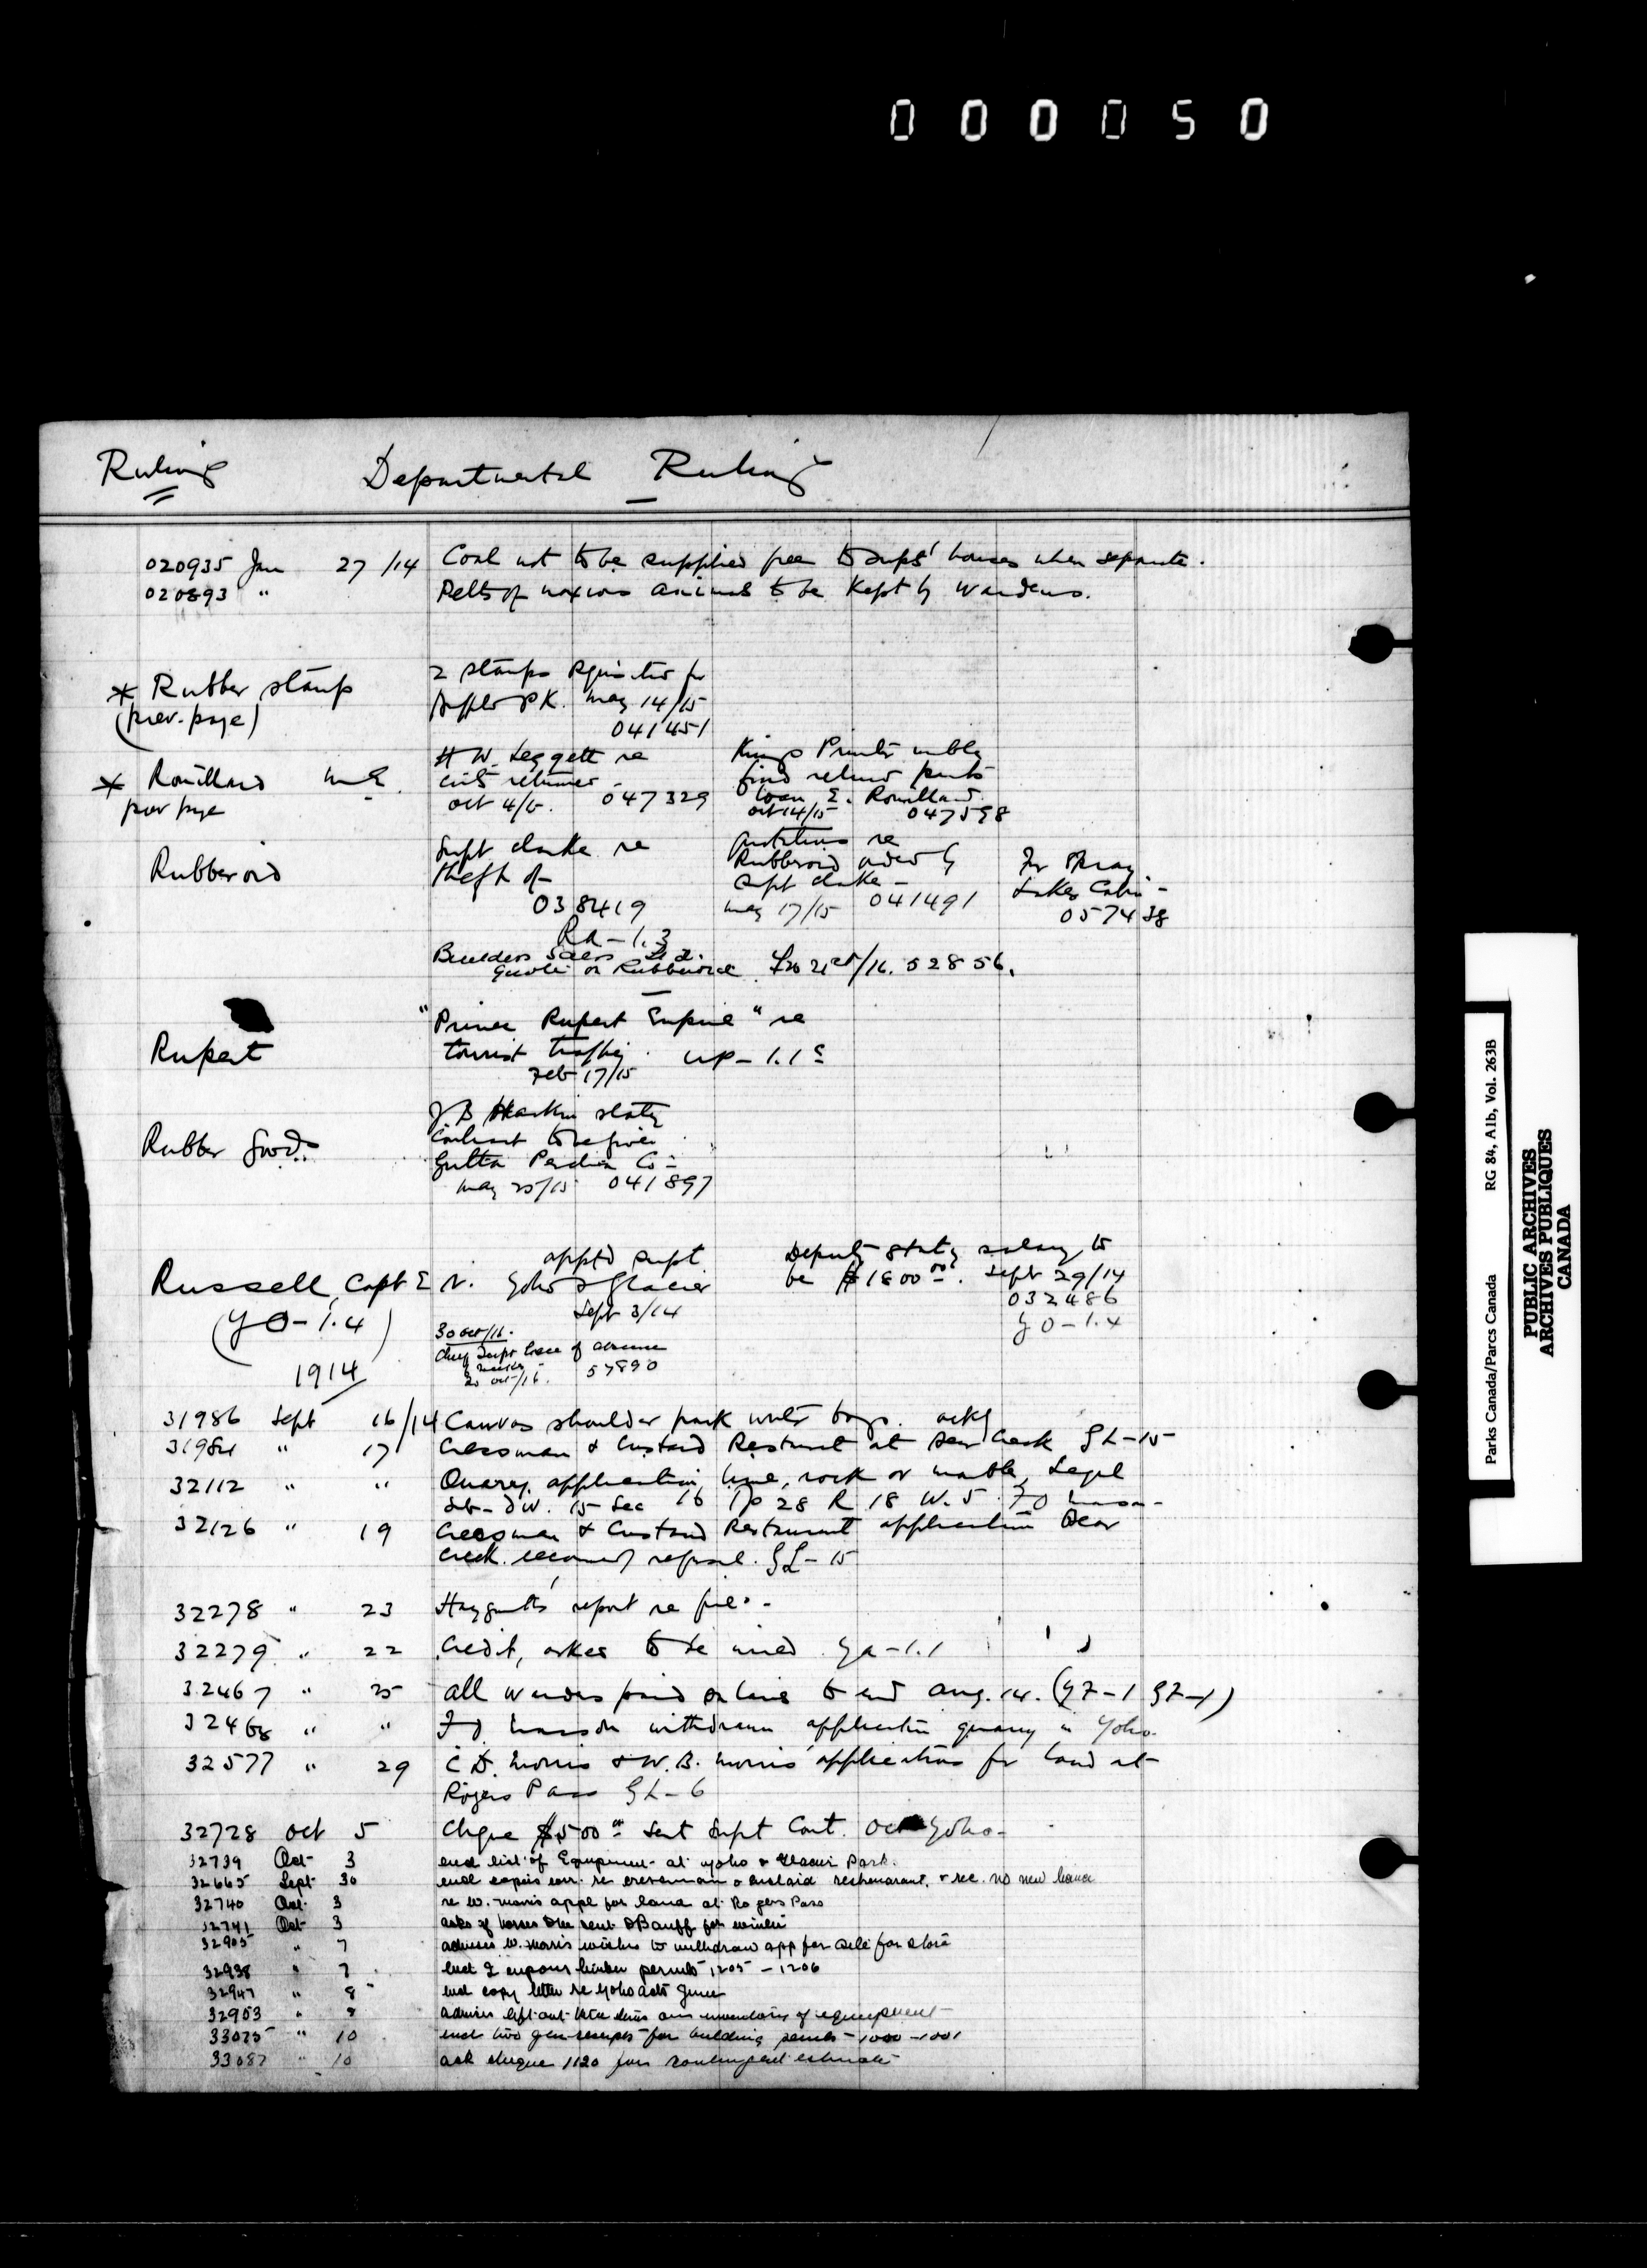 000050
Ruling Departmental Ruling
020935 Jan 27/14 Coal not to be supplied free to supts' houses when separate.
020893 " Pelts of noxious animals to be kept by Wardens.
* Rubber stamp
(prev. page)
2 stamps for
Buffalo PK. May 14/15
041451
* Rouillard
prev page
H W. Leggett re
returned
Oct 4/15. 047329
Kings Printer
find
E. Rouillard
Oct 14/15 047598
Rubberoid
Supt Clarke re
theft of
038419
RA-1.3
quotations re
Rubberoid asked by
Supt Clarke -
May 17/15 041491
For Spray
Lakes Cabin -
057438
Builders Sales Ltd.
quote on Rubberoid. 21st/16. 52856.
Rupert
"Prince Rupert Empire" re
tourist traffic. UP-1.1
Feb 17/15
Rubber Goods
J B Harkin states
Contract to be given
Gutta Percha Co -
May 25/15 041897
Russell, Capt E N.
(YO-1.4)
appt'd supt.
Yoho & Glacier
Sept 3/14
Deputy states salary to
be $1800.00. Sept 29/14
032486
YO-1.4
30 Oct/16.
Chief Supt leave of absence
20 Oct/16. 57890
1914
31986 Sept 16/14 Canvas shoulder pack water bags.
31984 " 17 Cressman & Custard Restaurant at Bear Creek GL-15
32112 " " Quarry application lime, rock or marble, Legal
Sub-div. 15 Sec 16 Tp 28 R 18 W. 5
32126 " 19 Cressman & Custard Restaurant application Bear
Creek. recommend refusal. GL-15
32278 " 23 report re fires -
32279 " 22 Credit, asks to be wired GA-1.1
32467 " 25 All Wardens paid salaries to end Aug. 14.
32468 " " withdraws application quarry in Yoho.
32577 " 29 C D. Morris & W. B. Morris application for land at
Rogers Pass GL-6
32728 Oct 5 Cheque $500.00 sent Supt Cont. Oct Yoho -
32739 Oct 3 encl list of Equipment at Yoho & Glacier Park.
32665 Sept 30 encl copies corr. re Cressman & Custard restaurant. & rec. no new licence
32740 Oct 3 re W. Morris appl for land at Rogers Pass
32741 Oct 3 asks if horses to be sent to Banff for winter
32905 " 7 advises W. Morris wishes to withdraw app for site for store
32938 " 7 encl 2 coupons timber permits 1205-1206
32947 " 8 encl copy letter re Yoho acts
32953 " 8 advises left out inventory of equipment
33025 " 10 encl two gen receipts for building permits - 1000-1001
33087 " 10 ask cheque 1120 for contingent estimate
Parks Canada/Parcs Canada RG 84, A1b, Vol. 263B
PUBLIC ARCHIVES
ARCHIVES PUBLIQUES
CANADA